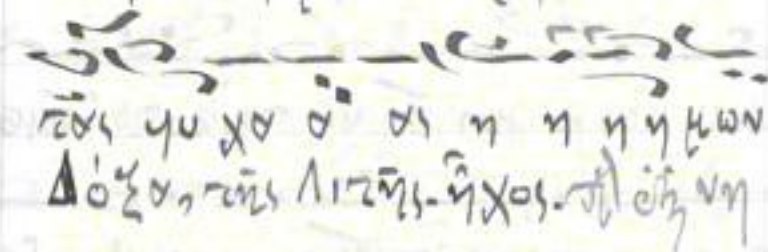 τὰς ψυ χα α ας η η η η μων
Δόξα, τῆς Λιτῆς. ἦχος.